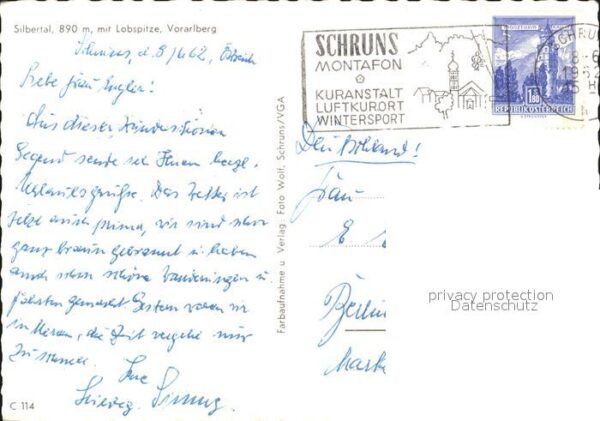 Silbertal, 890 m, mit Lobspitze, Vorarlberg
Schruns, d. 8/6 62, Österreich
Liebe Frau Engler!
Aus dieser wunderschönen
Gegend sende ich Ihnen herzl.
Urlaubsgrüße. Das Wetter ist
jetzt auch prima, wir sind schon
ganz braun gebrannt u. haben
auch schon schöne Wanderungen u.
Fahrten gemacht. Gestern waren wir
in Meran, die Zeit vergeht nur
zu
Ihre
C 114
Farbaufnahme u. Verlag: Foto Wolf, Schruns/VGA
SCHRUNS
MONTAFON
KURANSTALT
LUFTKURORT
WINTERSPORT
SCHRUNS
1.80
REPUBLIK ÖSTERREICH
Deutschland!
Frau
E
Berlin
Mark
privacy protection
Datenschutz